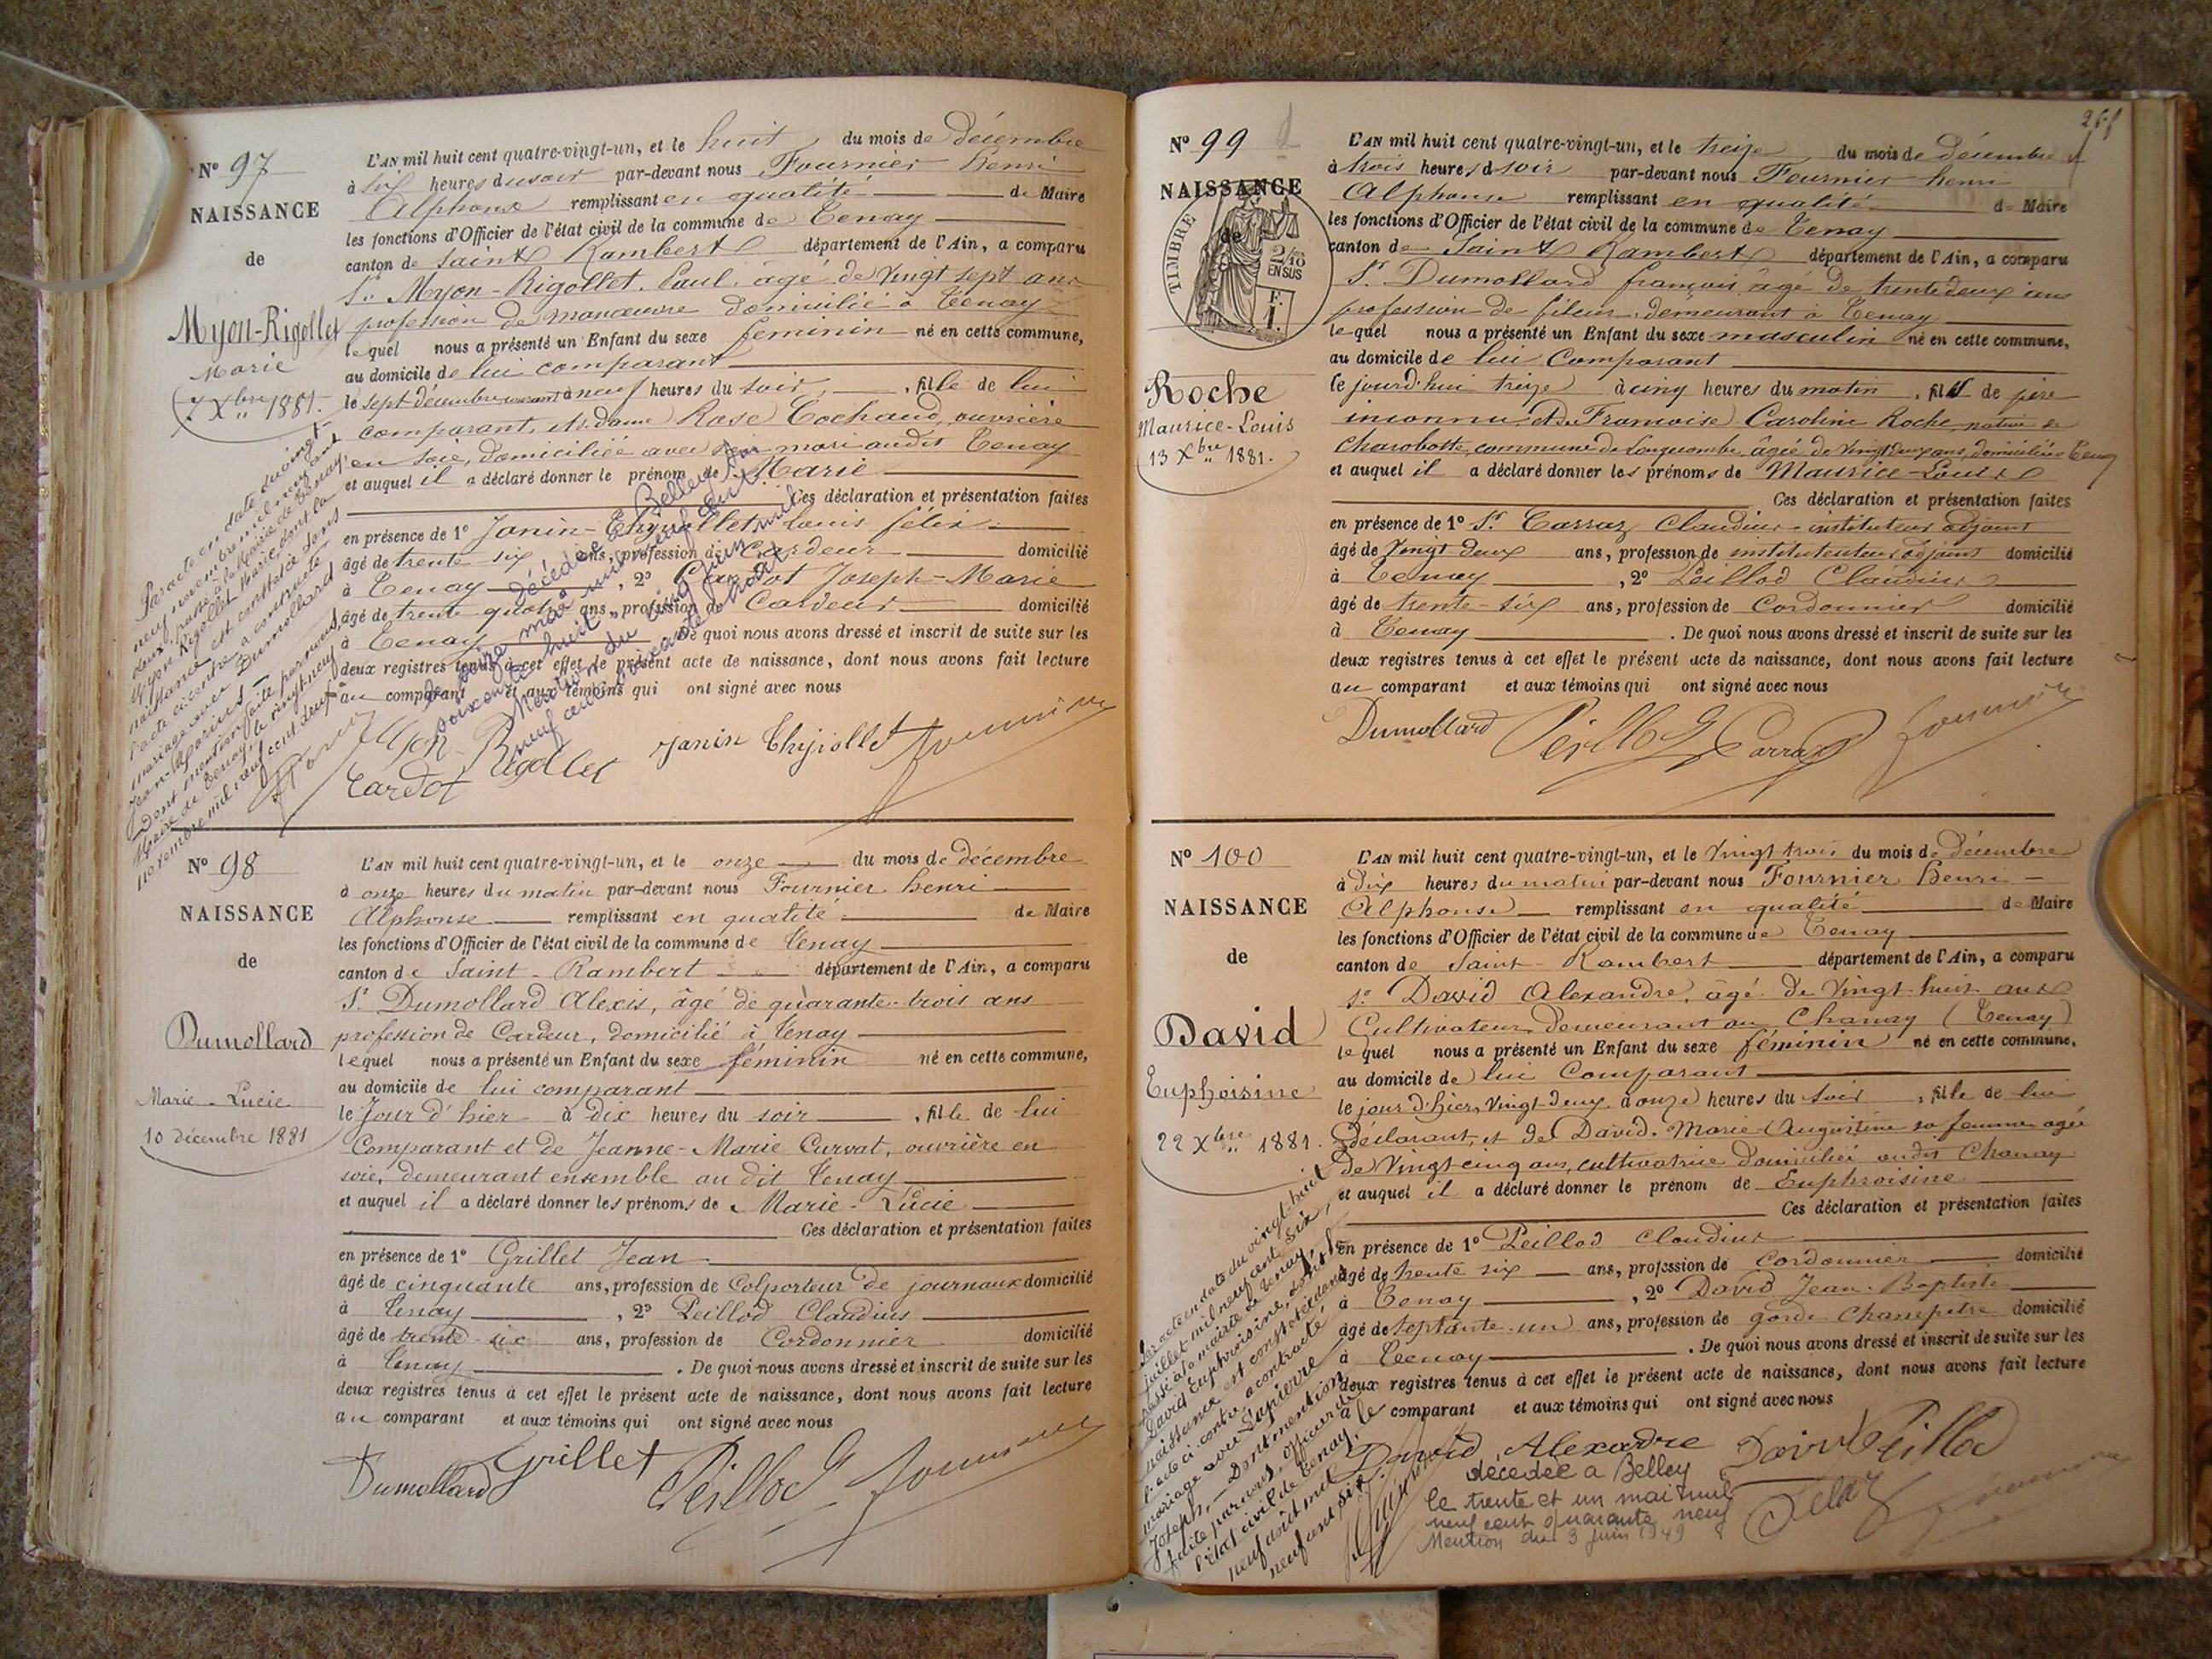 N° 97
NAISSANCE
de
Myon-Rigollet
Marie
7 Xbre 1881.
L'AN mil huit cent quatre-vingt-un, et le huit du mois de décembre
à six heures du soir par-devant nous Fournier henri
Alphonse remplissant en qualité de Maire
les fonctions d'Officier de l'état civil de la commune de Tenay
canton de Saint Rambert département de l'Ain, a comparu
Sr. Myon-Rigollet, Paul, âgé de vingt sept ans
profession de manœuvre domicilié à Tenay
lequel nous a présenté un Enfant du sexe féminin né en cette commune,
au domicile de lui comparant
le sept décembre courant à neuf heures du soir, fille de lui
comparant, et de dame Rose Cochaud, ouvrière
en soie, domiciliée avec son mari audit Tenay
et auquel il a déclaré donner le prénom de Marie
Ces déclaration et présentation faites
en présence de 1° Janin-Thyollet, Louis félix
âgé de trente-six ans, profession de Cardeur domicilié
à Tenay, 2° Cardot Joseph-Marie
âgé de trente quatre ans, profession de Cardeur domicilié
à Tenay. De quoi nous avons dressé et inscrit de suite sur les
deux registres tenus à cet effet le présent acte de naissance, dont nous avons fait lecture
au comparant et aux témoins qui ont signé avec nous
Par acte en date du vingt-
neuf novembre mil neuf cent
deux, passé à la Mairie de Tenay,
Myon Rigollet Marie dont la
naissance est constatée dans
l'acte ci-contre, a contracté
mariage avec Dumollard
Jean-Marius
Dont mention faite par nous,
Maire de Tenay, le vingt neuf
novembre mil neuf cent deux
Décédée à Belley le
seize mai mil neuf cent
soixante huit
Mention du cinq juin mil
neuf cent soixante huit
Myon Rigollet Janin Thyiollet Fournier
Cardot
N° 98
NAISSANCE
de
Dumollard
Marie-Lucie
10 décembre 1881
L'AN mil huit cent quatre-vingt-un, et le onze du mois de décembre
à onze heures du matin par-devant nous Fournier henri
Alphonse remplissant en qualité de Maire
les fonctions d'Officier de l'état civil de la commune de Tenay
canton de Saint-Rambert département de l'Ain, a comparu
Sr Dumollard Alexis, âgé de quarante-trois ans
profession de Cardeur, domicilié à Tenay
lequel nous a présenté un Enfant du sexe féminin né en cette commune,
au domicile de lui comparant
le Jour d'hier à dix heures du soir, fille de lui
Comparant et de Jeanne-Marie Curvat, ouvrière en
soie, demeurant ensemble au dit Tenay
et auquel il a déclaré donner les prénoms de Marie-Lucie
Ces déclaration et présentation faites
en présence de 1° Grillet Jean
âgé de cinquante ans, profession de Colporteur de journaux domicilié
à Tenay, 2° Peillod Claudius
âgé de trente-six ans, profession de Cordonnier domicilié
à Tenay. De quoi nous avons dressé et inscrit de suite sur les
deux registres tenus à cet effet le présent acte de naissance, dont nous avons fait lecture
au comparant et aux témoins qui ont signé avec nous
Dumollard Grillet Peillod Fournier
N° 99
NAISSANCE
de
TIMBRE
2/10
EN SUS
F.
I.
Roche
Maurice-Louis
13 Xbre 1881.
L'AN mil huit cent quatre-vingt-un, et le treize du mois de décembre
à trois heures d soir par-devant nous Fournier henri
Alphonse remplissant en qualité de Maire
les fonctions d'Officier de l'état civil de la commune de Tenay
canton de Saint Rambert département de l'Ain, a comparu
Sr. Dumollard françois âgé de trente deux ans
profession de fileur demeurant à Tenay
lequel nous a présenté un Enfant du sexe masculin né en cette commune,
au domicile de lui Comparant
le jourd'hui treize à cinq heures du matin, fils de père
inconnu et de Françoise Caroline Roche, native de
Charabotte, commune de Longecombe, âgée de vingt deux ans, domiciliée à Tenay
et auquel il a déclaré donner les prénoms de Maurice-Louis
Ces déclaration et présentation faites
en présence de 1° Sr Carraz Claudius instituteur adjoint
âgé de Vingt deux ans, profession de instituteur adjoint domicilié
à Tenay, 2° Peillod Claudius
âgé de trente-six ans, profession de Cordonnier domicilié
à Tenay. De quoi nous avons dressé et inscrit de suite sur les
deux registres tenus à cet effet le présent acte de naissance, dont nous avons fait lecture
au comparant et aux témoins qui ont signé avec nous
Dumollard Peillod Carraz Fournier
N° 100
NAISSANCE
de
David
Euphoisine
22 Xbre 1881.
L'AN mil huit cent quatre-vingt-un, et le Vingt trois du mois de décembre
à dix heures du matin par-devant nous Fournier henri
Alphonse remplissant en qualité de Maire
les fonctions d'Officier de l'état civil de la commune de Tenay
canton de Saint-Rambert département de l'Ain, a comparu
Sr. David Alexandre, âgé de Vingt-huit ans
Cultivateur demeurant au Chanay (Tenay)
lequel nous a présenté un Enfant du sexe féminin né en cette commune,
au domicile de lui Comparant
le jour d'hier, vingt-deux à onze heures du soir, fille de lui
déclarant, et de David Marie-Augustine sa femme agée
de Vingt cinq ans, cultivatrice domiciliée audit Chanay
et auquel il a déclaré donner le prénom de Euphroisine
Ces déclaration et présentation faites
en présence de 1° Peillod Claudius
âgé de trente six ans, profession de Cordonnier domicilié
à Tenay, 2° David Jean-Baptiste
âgé de septante-un ans, profession de garde champêtre domicilié
à Tenay. De quoi nous avons dressé et inscrit de suite sur les
deux registres tenus à cet effet le présent acte de naissance, dont nous avons fait lecture
au comparant et aux témoins qui ont signé avec nous
Par acte en date du vingt-huit
juillet mil neuf cent six,
passé à la mairie de Tenay,
David Euphroisine, dont la
naissance est constatée dans
l'acte ci-contre a contracté
mariage avec Lapierre
Joseph. Dont mention
faite par nous, officier de
l'état civil de Tenay, le
neuf août mil
neuf cent six
David Alexadre David Peillod
décédée à Belley
le trente et un mai mil
neuf cent quarante neuf
Mention du 3 juin 1949
Fournier